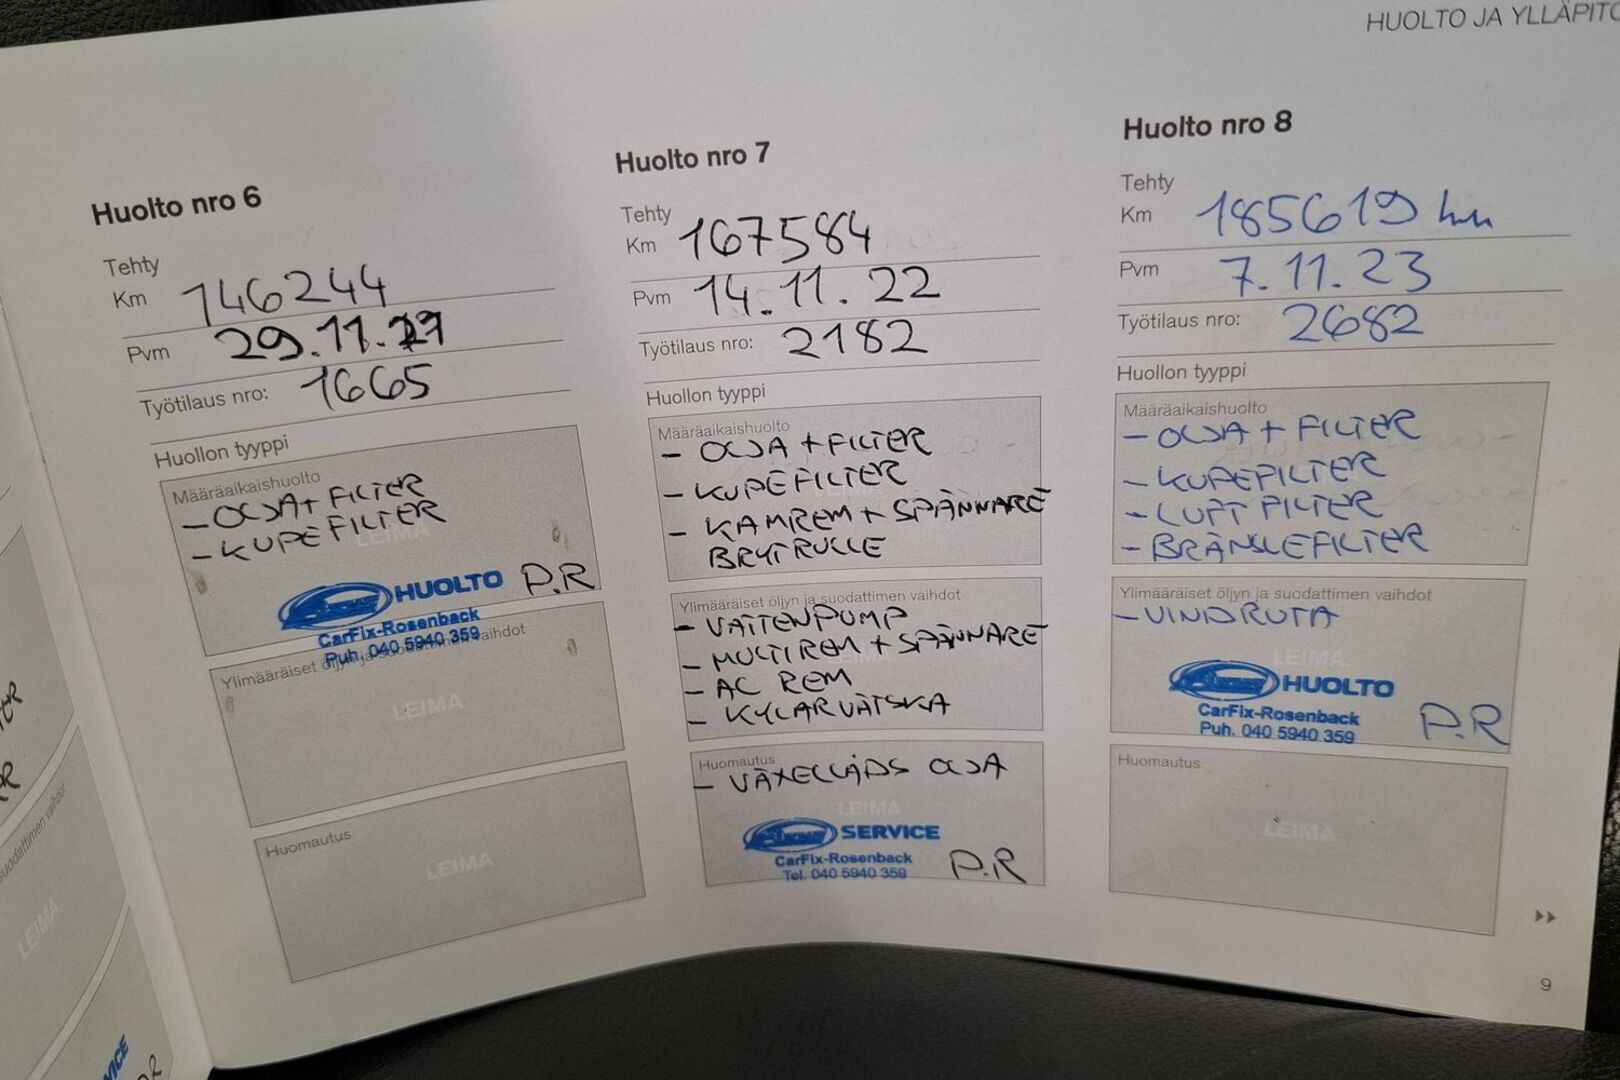 HUOLTO JA YLLÄPITO
Huolto nro 6
Tehty
Km 146244
Pvm 29.11.
Työtilaus nro: 1665
Huollon tyyppi
Määräaikaishuolto
- OLJA + FILTER
- KUPEFILTER
LEIMA
HUOLTO P.R
CarFix-Rosenback
Puh. 040 5940 359
Ylimääräiset öljyn ja suodattimen vaihdot
LEIMA
Huomautus
LEIMA
Huolto nro 7
Tehty
Km 167584
Pvm 14.11.22
Työtilaus nro: 2182
Huollon tyyppi
Määräaikaishuolto
- OLJA + FILTER
- KUPEFILTER
- KAMREM + SPÄNNARE
BRYTRULLE
Ylimääräiset öljyn ja suodattimen vaihdot
- VATTENPUMP
- MULTIREM + SPÄNNARE
- AC REM
- KYLARVÄTSKA
Huomautus
- VÄXELLÅDS OLJA
LEIMA
SERVICE
CarFix-Rosenback
Tel. 040 5940 359
P.R
Huolto nro 8
Tehty
Km 185619 km
Pvm 7.11.23
Työtilaus nro: 2682
Huollon tyyppi
Määräaikaishuolto
- OLJA + FILTER
- KUPEFILTER
- LUFT FILTER
- BRÄNSLEFILTER
Ylimääräiset öljyn ja suodattimen vaihdot
- VINDRUTA
LEIMA
HUOLTO
CarFix-Rosenback
Puh. 040 5940 359
P.R
Huomautus
LEIMA
9